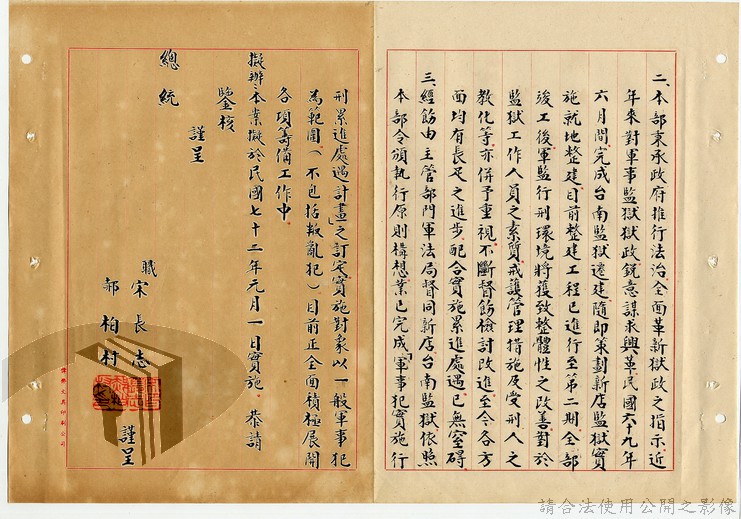 二、本部秉承政府推行法治、全面革新獄政之指示、近
年來對軍事監獄獄政銳意謀求興革、民國六十九年
六月間完成台南監獄遷建、隨即策劃新店監獄實
施就地整建、目前整建工程已進行至第二期、全部
竣工後軍監行刑環境將獲致整體性之改善、對於
監獄工作人員之素質、戒護管理措施及受刑人之
教化等、亦併予重視、不斷督飭檢討改進、至今各方
面均有長足之進步、配合實施累進處遇、已無窒礙。
三、經飭由主管部門軍法局督同新店、台南監獄依照
本部令頒執行原則構想、業已完成「軍事犯實施行
刑累進處遇計畫」之訂定、實施對象以一般軍事犯
為範圍(不包括叛亂犯)目前正全面積極展開
各項籌備工作中。
擬辦：本案擬於民國七十二年元月一日實施。恭請
鑒核
謹呈
總統
職 宋長志
郝柏村
謹呈
請合法使用公開之影像